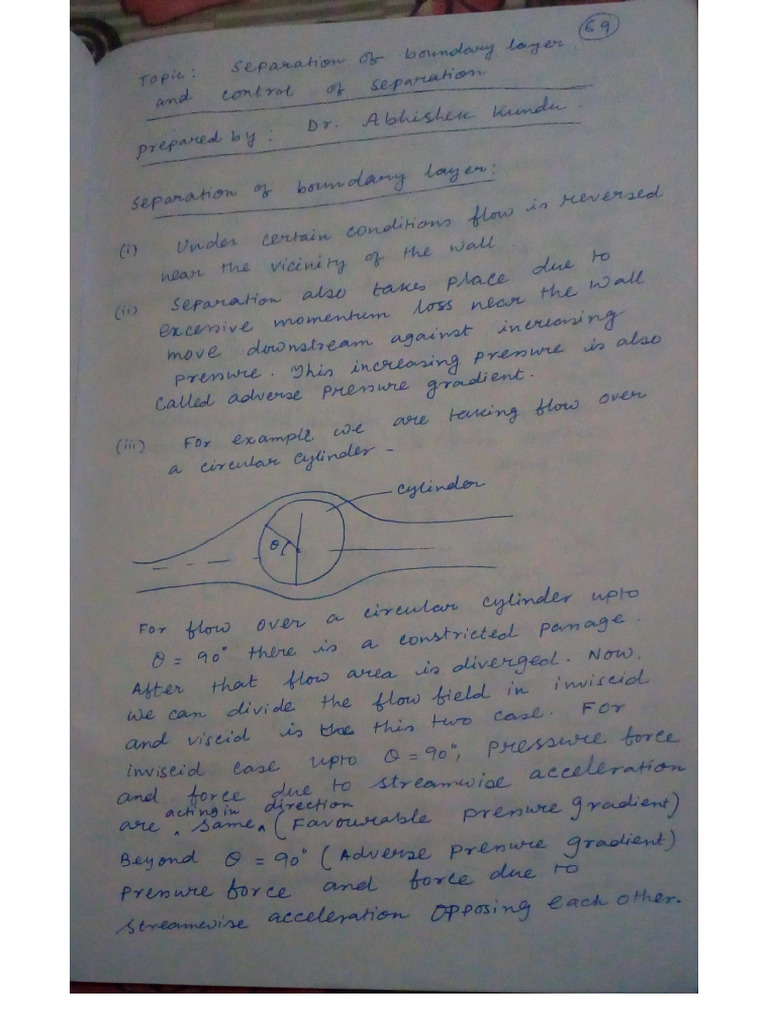 69
Topic: Separation of boundary layer
and control of separation
prepared by: Dr. Abhishek Kundu.
Separation of boundary layer:
(i) Under certain conditions flow is reversed
near the vicinity of the wall.
(ii) Separation also takes place due to
excessive momentum loss near the wall
move downstream against increasing
pressure. This increasing pressure is also
called adverse pressure gradient.
(iii) For example we are taking flow over
a circular cylinder -
cylinder
θ
For flow over a circular cylinder upto
θ = 90° there is a constricted passage.
After that flow area is diverged. Now,
we can divide the flow field in inviscid
and viscid is the this two case. For
inviscid case upto θ = 90°, pressure force
and force due to streamwise acceleration
are acting in same direction (Favourable pressure gradient)
Beyond θ = 90° (Adverse pressure gradient)
pressure force and force due to
streamwise acceleration opposing each other.